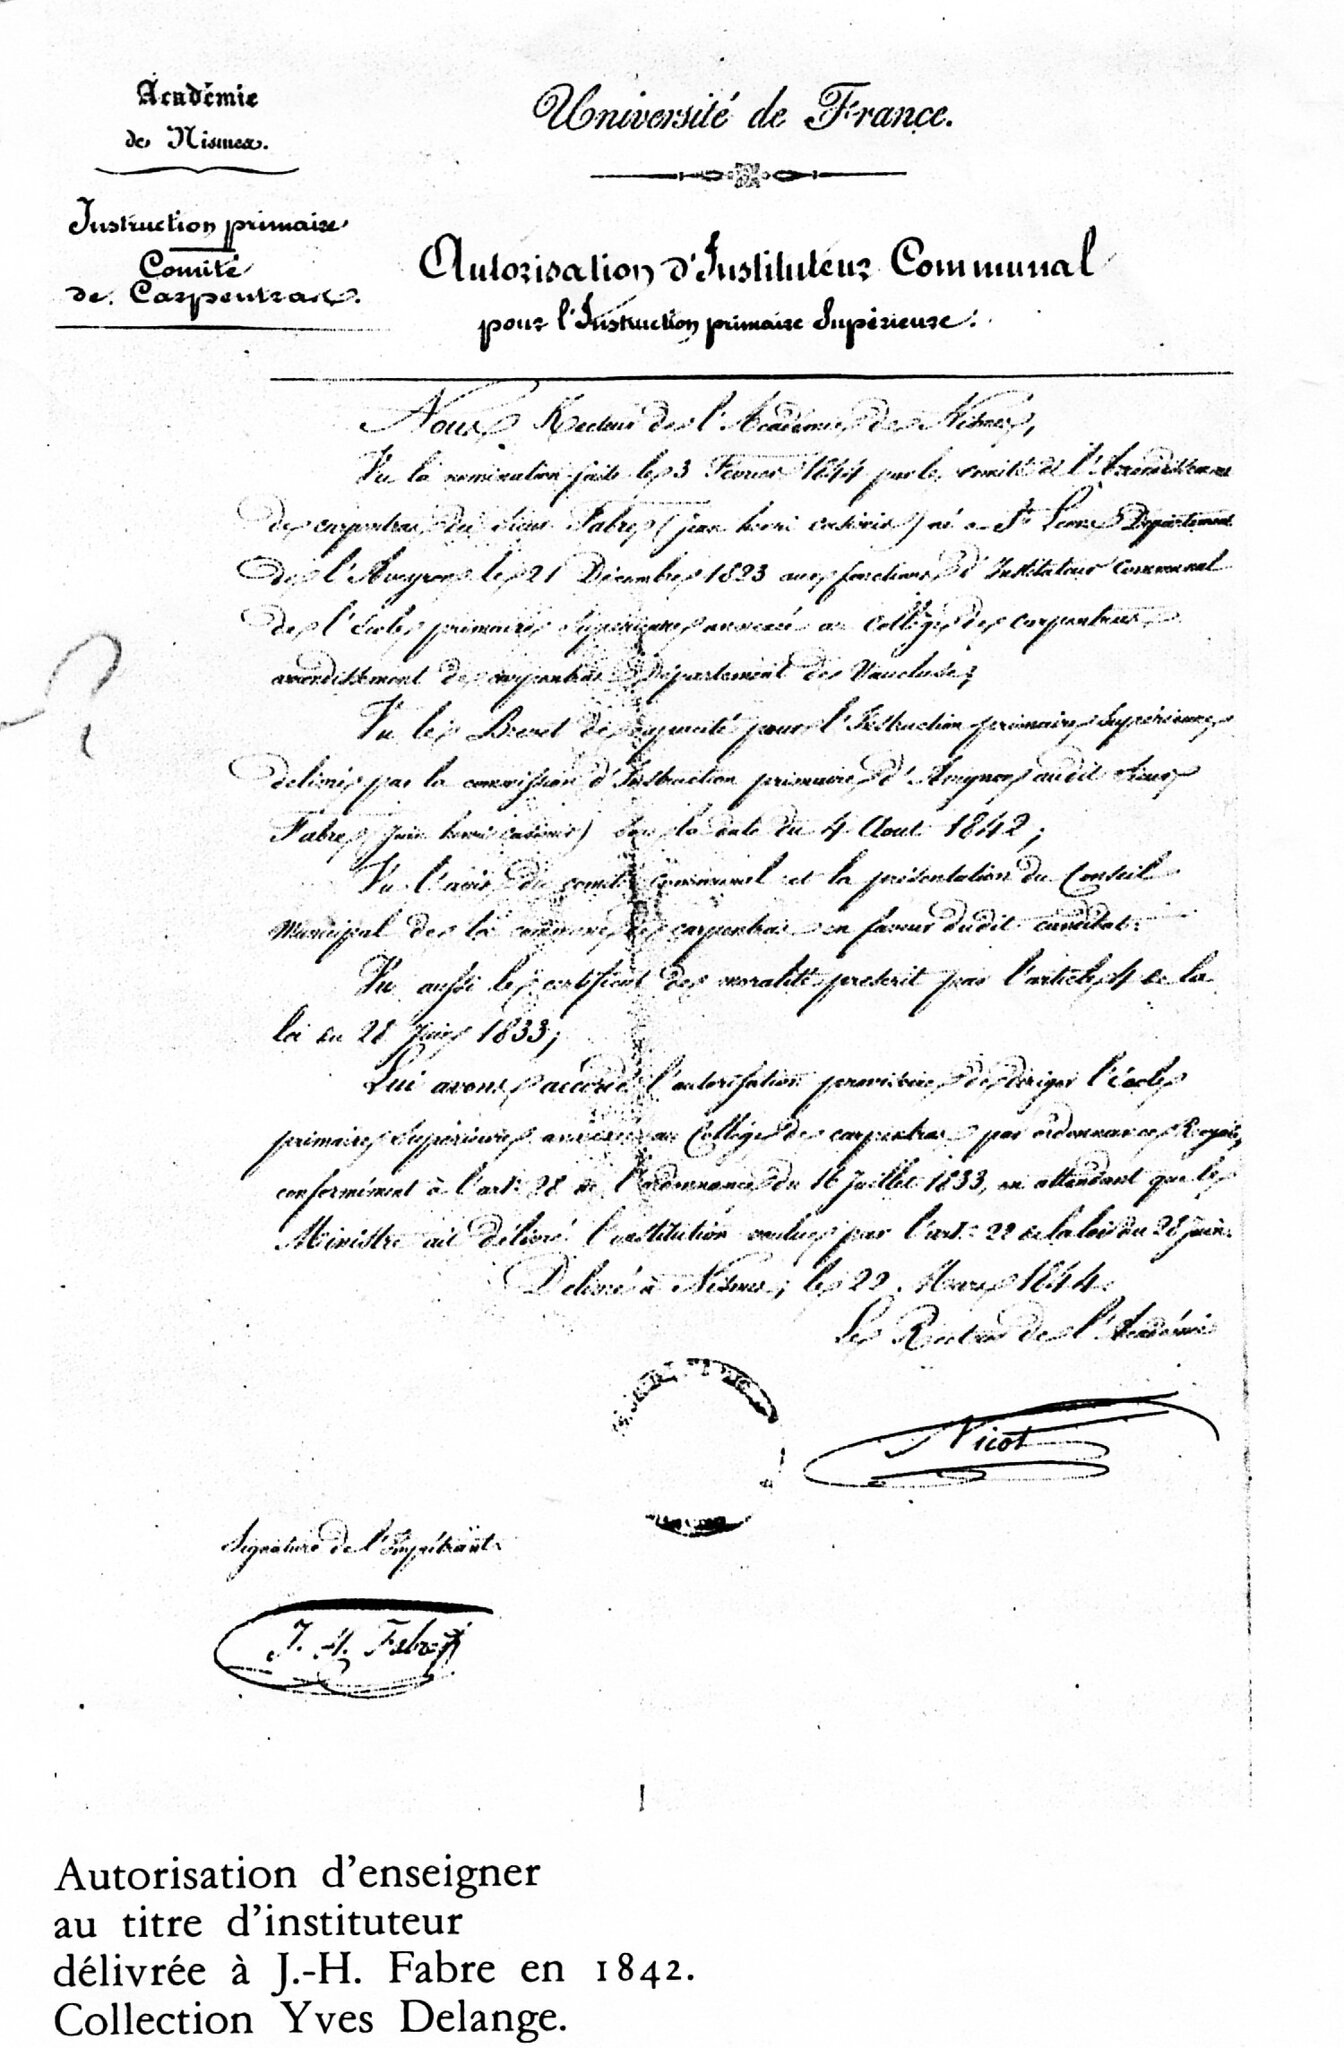 Académie
de Nismes.
Instruction primaire
Comité
de Carpentras.
Université de France.
Autorisation d'Instituteur Communal
pour l'Instruction primaire Supérieure.
Nous Recteur de l'Académie de Nismes,
Vu la nomination faite le 3 Février 1844 par le comité de l'Arrondissement
de carpentras du Sieur Fabre (jean henri casimir) né a St Leons Département
de l'Aveyron le 21 Décembre 1823 aux fonctions d'Instituteur Communal
de l'École primaire Supérieure annexée au Collège de Carpentras
arrondissement de carpentras Département de Vaucluse;
Vu le Brevet de capacité pour l'Instruction primaire Supérieure
délivré par la commission d'Instruction primaire d' audit Sieur
Fabre (jean henri casimir) sous la date du 4 Aout 1842;
Vu l'avis du comité communal et la présentation du Conseil
Municipal de la commune de carpentras en faveur dudit candidat.
Vu aussi le certificat de moralité prescrit par l'article 4 de la
loi du 28 Juin 1833;
Lui avons accordé l'autorisation provisoire de diriger l'école
primaire Supérieure annexée au Collège de carpentras par ordonnance Royale,
conformément à l'art. 28 de l'ordonnance du 16 Juillet 1833, en attendant que le
Ministre ait délivré l'institution voulue par l'art. 22 de la loi du 28 juin.
Délivré à Nismes, le 22 Mars 1844.
Le Recteur de l'Académie
Nicot
Signature de l'Impétrant.
J. H. Fabre
Autorisation d'enseigner
au titre d'instituteur
délivrée à J.-H. Fabre en 1842.
Collection Yves Delange.